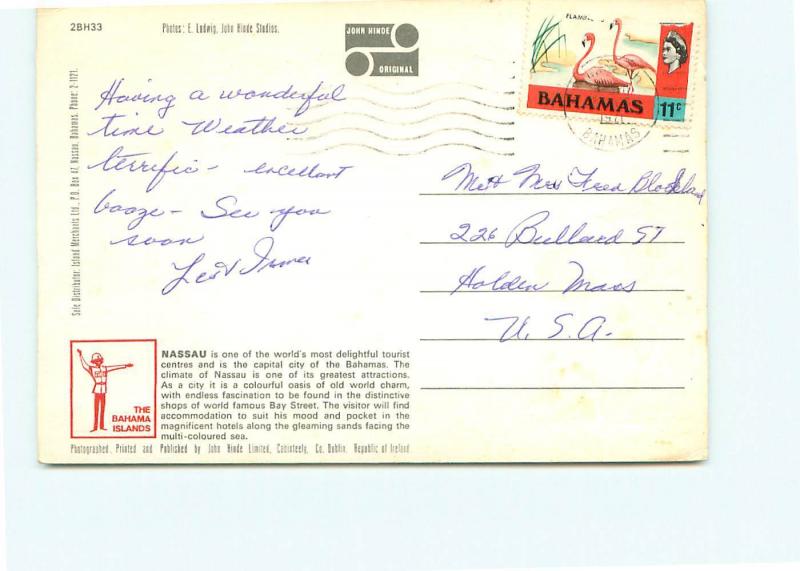 2BH33
Photos: E. Ludwig, John Hinde Studios.
JOHN HINDE
ORIGINAL
BAHAMAS 11c
BAHAMAS
Having a wonderful
time Weather
terrific - excellant
booze - See you
soon
Les & Irma
Fred
226 Bullard ST
Holden Mass
U.S.A.
Sole Distributor: Island Merchants Ltd., P.O. Box 47, Nassau, Bahamas. Phone: 2-1121.
THE
BAHAMA
ISLANDS
NASSAU is one of the world's most delightful tourist
centres and is the capital city of the Bahamas. The
climate of Nassau is one of its greatest attractions.
As a city it is a colourful oasis of old world charm,
with endless fascination to be found in the distinctive
shops of world famous Bay Street. The visitor will find
accommodation to suit his mood and pocket in the
magnificent hotels along the gleaming sands facing the
multi-coloured sea.
Photographed, Printed and Published by John Hinde Limited, Cabinteely, Co. Dublin, Republic of Ireland